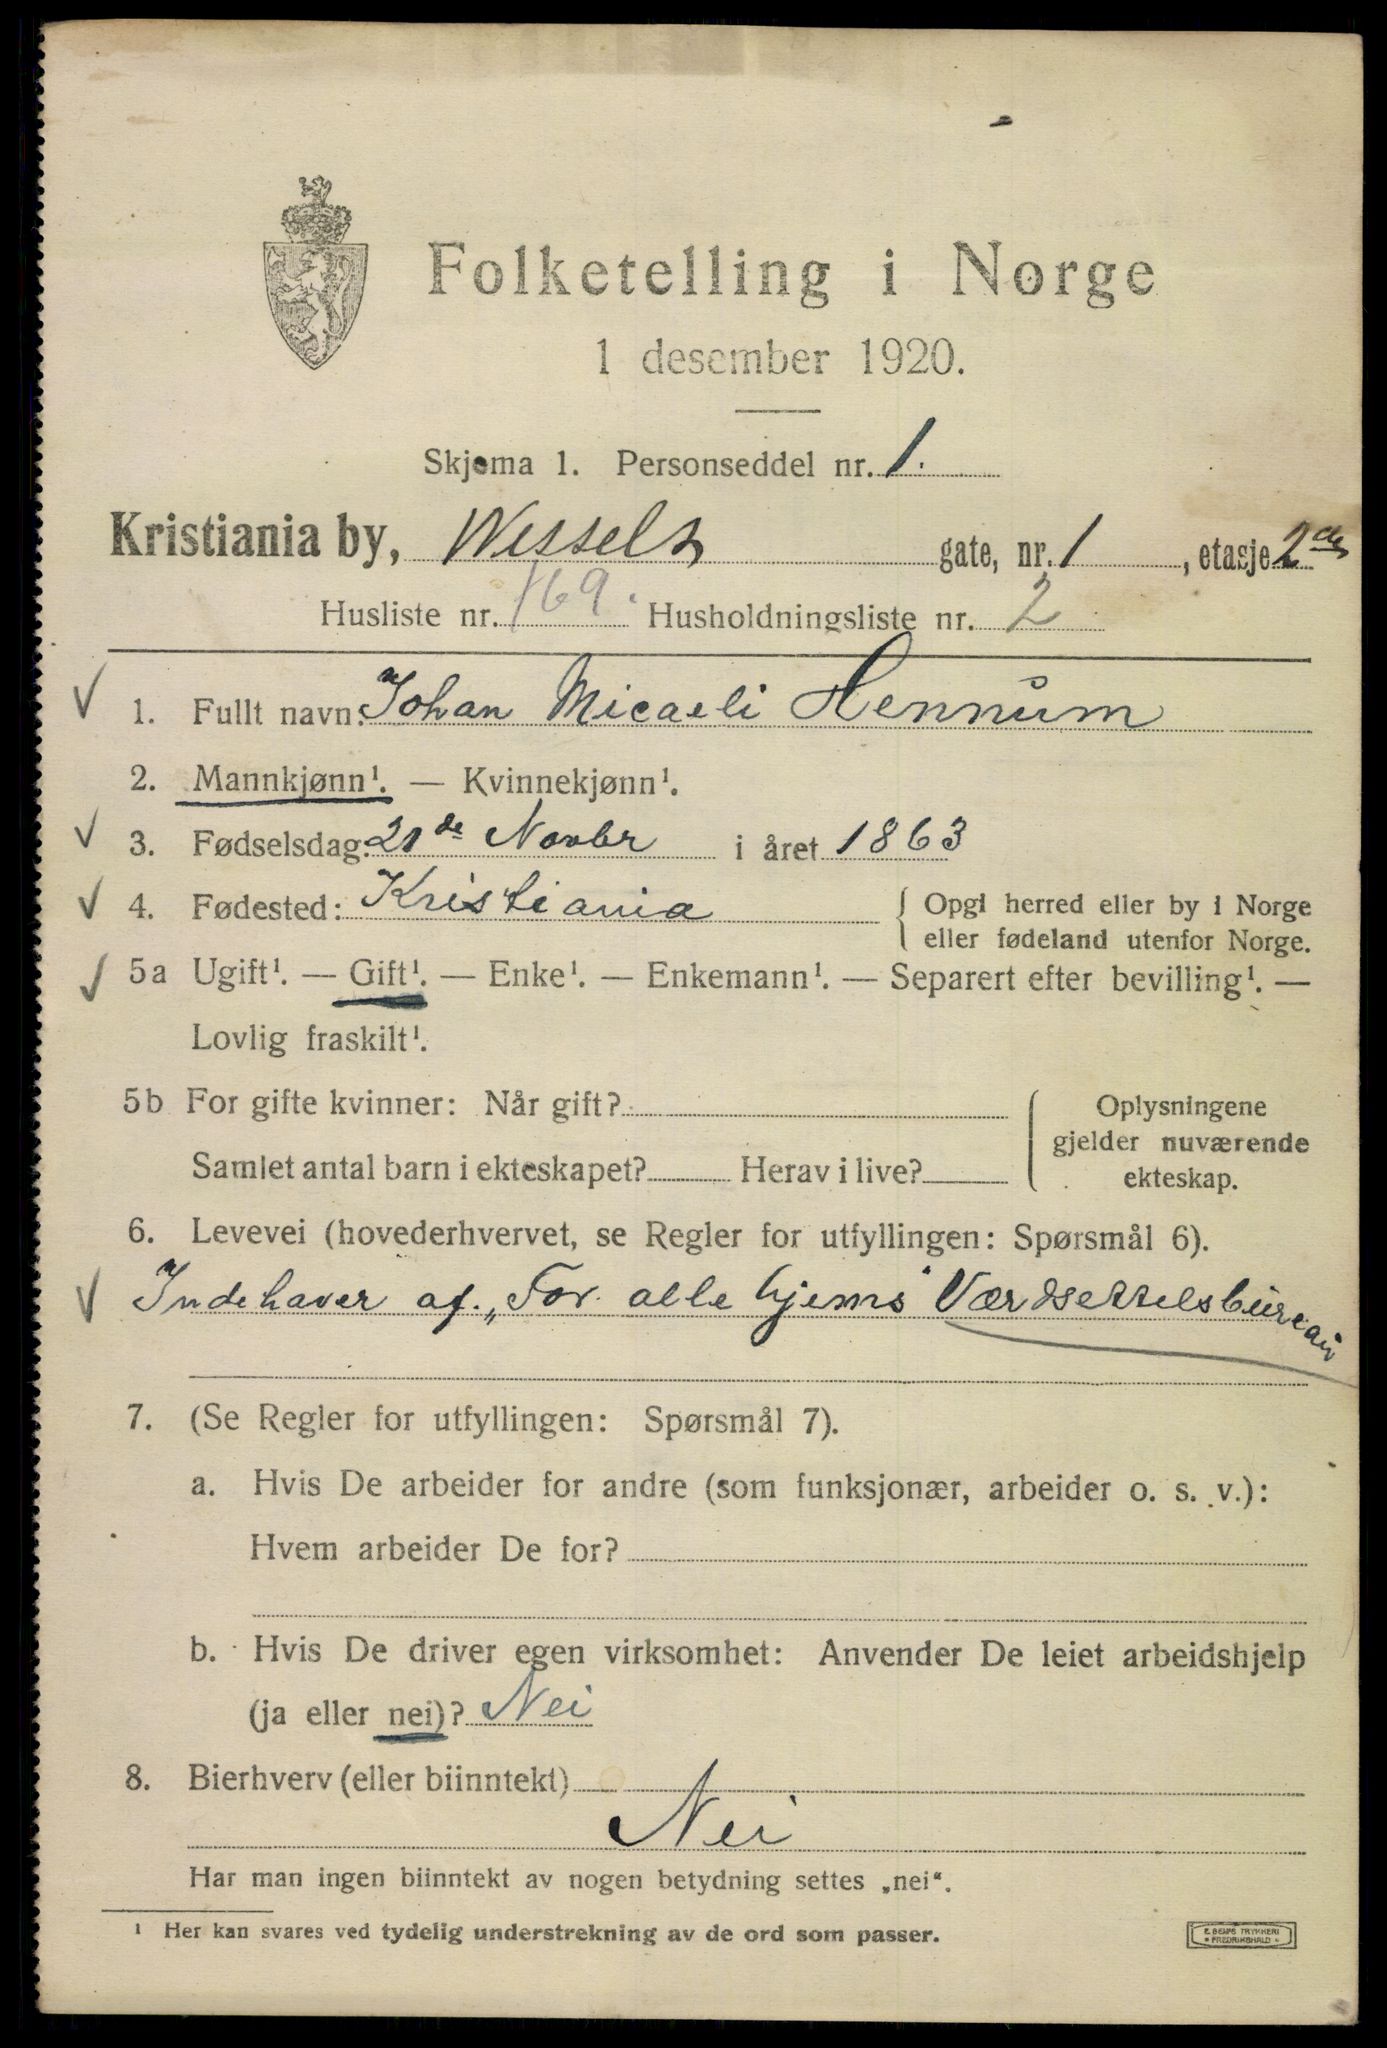 Folketelling i Norge
1 desember 1920.
Skjema 1. Personseddel nr. 1.
Kristiania by, Wessels gate, nr. 1, etasje 2den
Husliste nr. 169. Husholdningsliste nr. 2
1. Fullt navn: Johan Micaeli Hennum
2. Mannkjønn¹. — Kvinnekjønn¹.
3. Fødselsdag: 21de Novbr i året 1863
4. Fødested: Kristiania { Opgi herred eller by i Norge
eller fødeland utenfor Norge.
5a Ugift¹. — Gift¹. — Enke¹. — Enkemann¹. — Separert efter bevilling¹. —
Lovlig fraskilt¹.
5b For gifte kvinner: Når gift? { Oplysningene
gjelder nuværende
Samlet antal barn i ekteskapet? Herav i live?
ekteskap.
6. Levevei (hovederhvervet, se Regler for utfyllingen: Spørsmål 6).
Indehaver af „For alle hjems" Værdsettelsbureau
7. (Se Regler for utfyllingen: Spørsmål 7).
a. Hvis De arbeider for andre (som funksjonær, arbeider o. s. v.):
Hvem arbeider De for?
b. Hvis De driver egen virksomhet: Anvender De leiet arbeidshjelp
(ja eller nei)? Nei
8. Bierhverv (eller biinntekt)
Nei
Har man ingen biinntekt av nogen betydning settes „nei“.
¹ Her kan svares ved tydelig understrekning av de ord som passer.
E SEMS TRYKKERI
FREDRIKSHALD